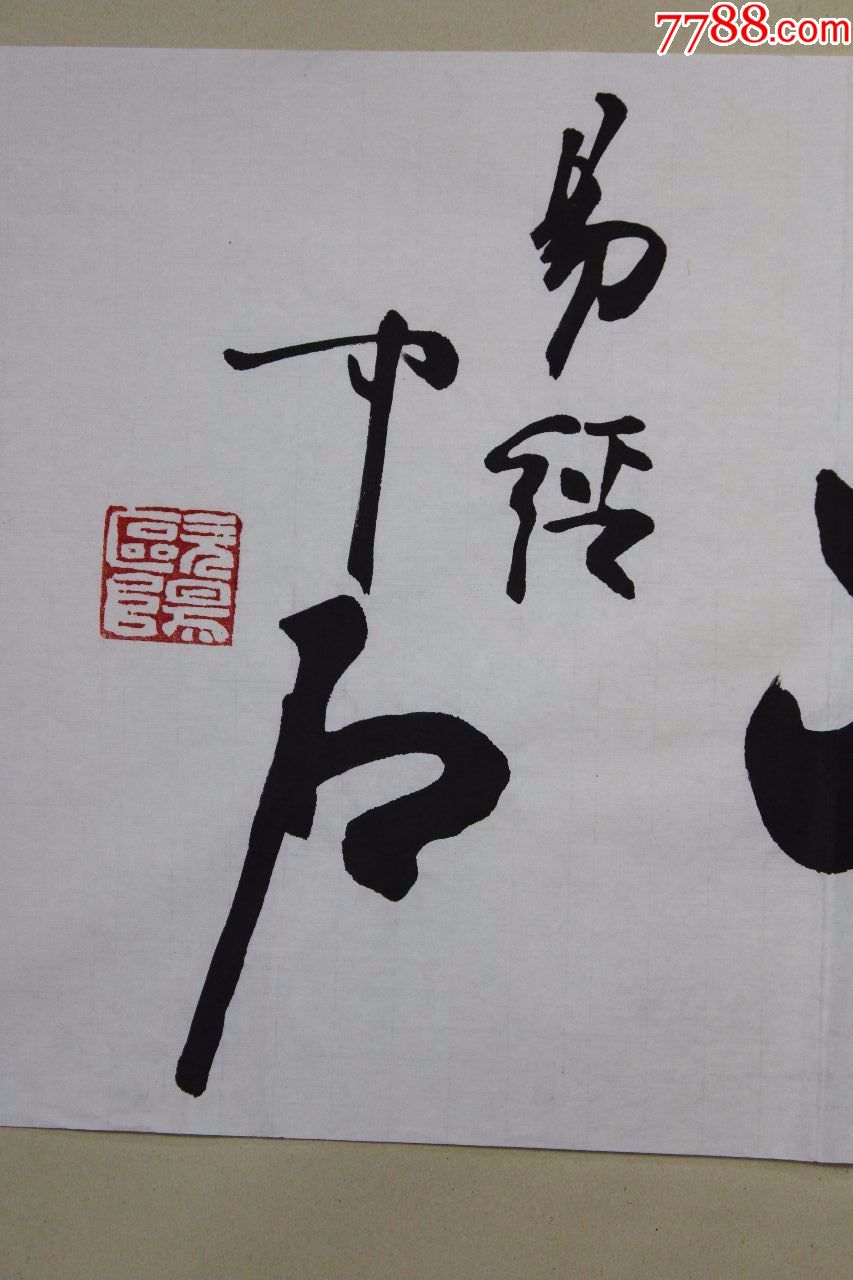 7788.com
易經
中石